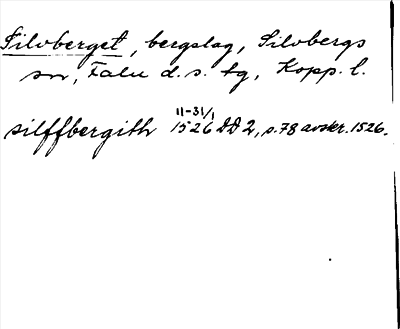 Silvberget, bergslag, Silvbergs
sn, Falu d.s. tg, Kopp. l.
11-31/1
silffbergith 1526 DD 2, s. 78 avskr. 1526.